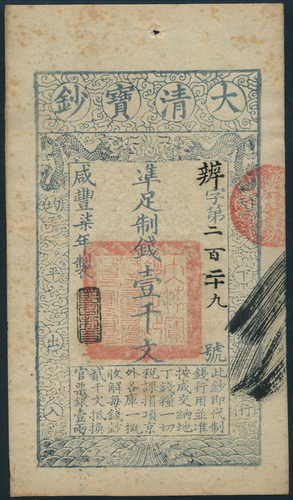 大清寶鈔
天下
行
辦字第二百二十九號
準足制錢壹千文
咸豐柒年製
均平出入
此鈔即代制
錢行用並准
按成交納地
丁錢糧一切
稅課捐項京
外各庫一概
收解每錢鈔
貳千文抵換
官票銀壹兩